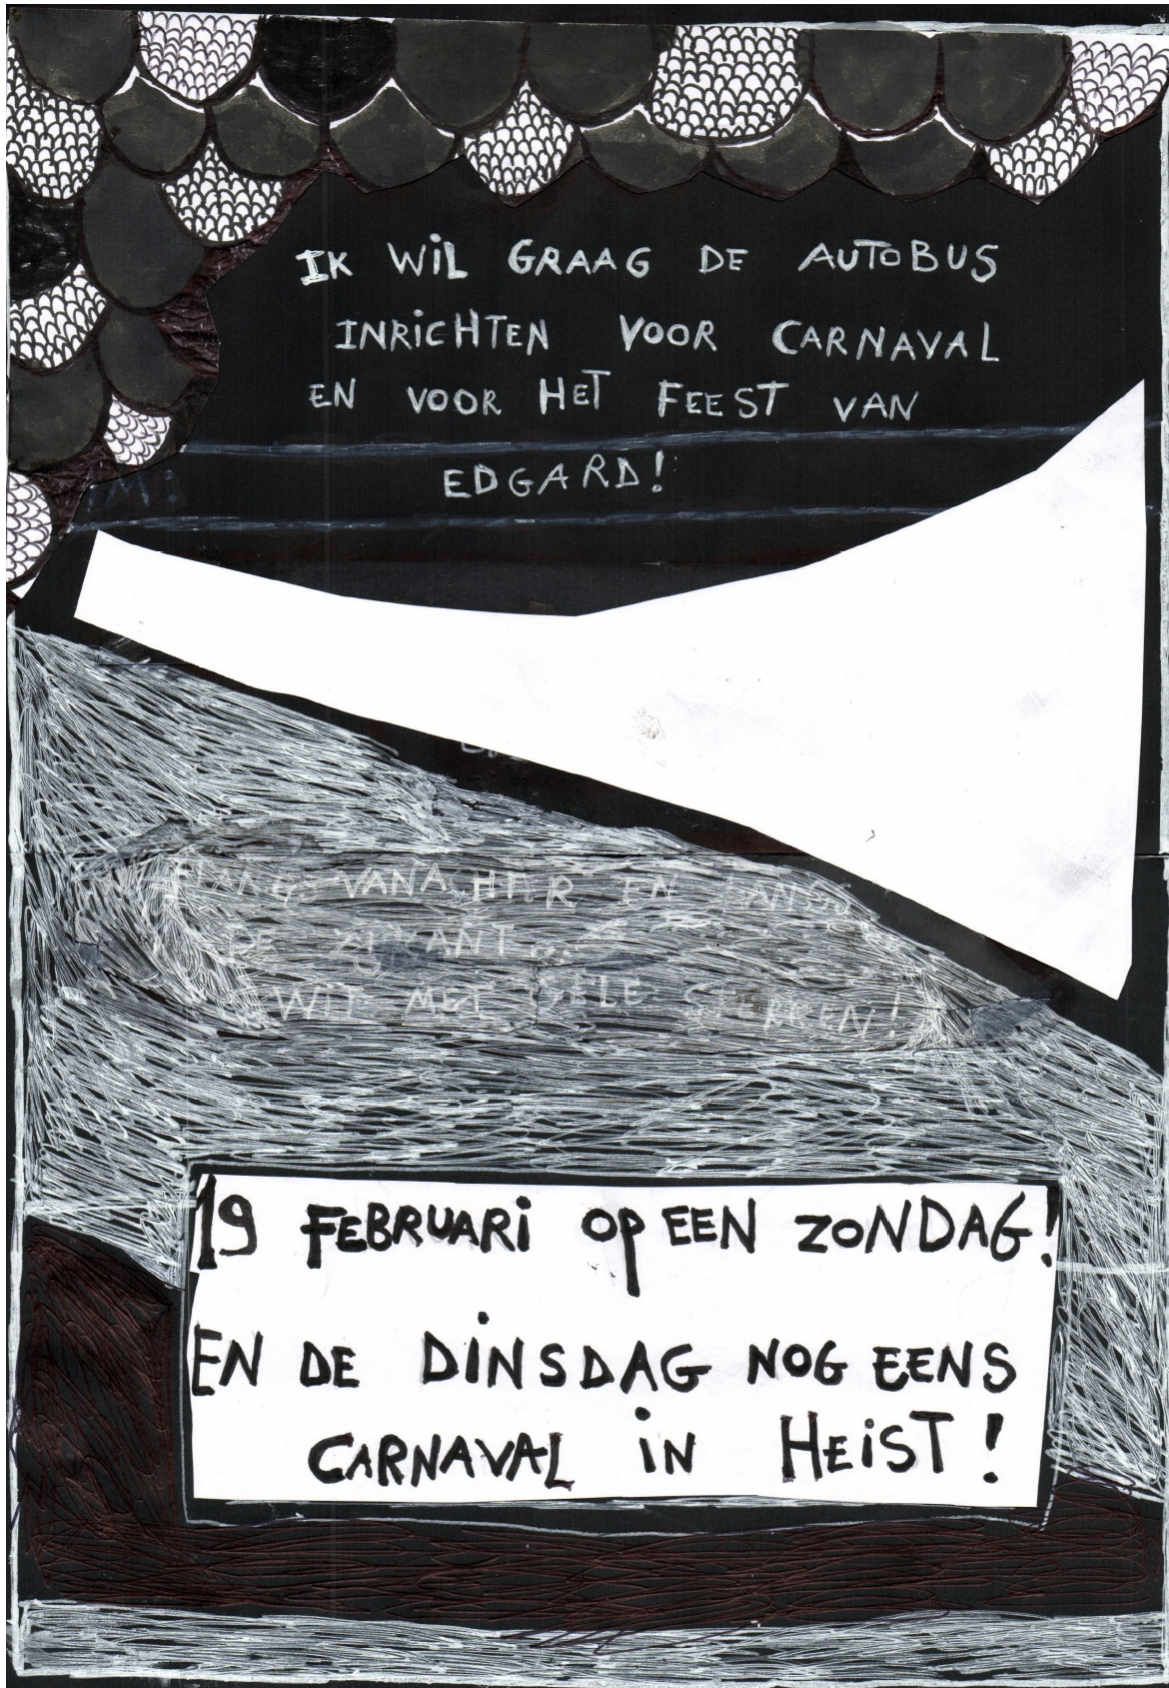 IK WIL GRAAG DE AUTOBUS
INRICHTEN VOOR CARNAVAL
EN VOOR HET FEEST VAN
EDGARD!
HIER EN
WIT MET GELE
19 FEBRUARI OP EEN ZONDAG!
EN DE DINSDAG NOG EENS
CARNAVAL IN HEIST!